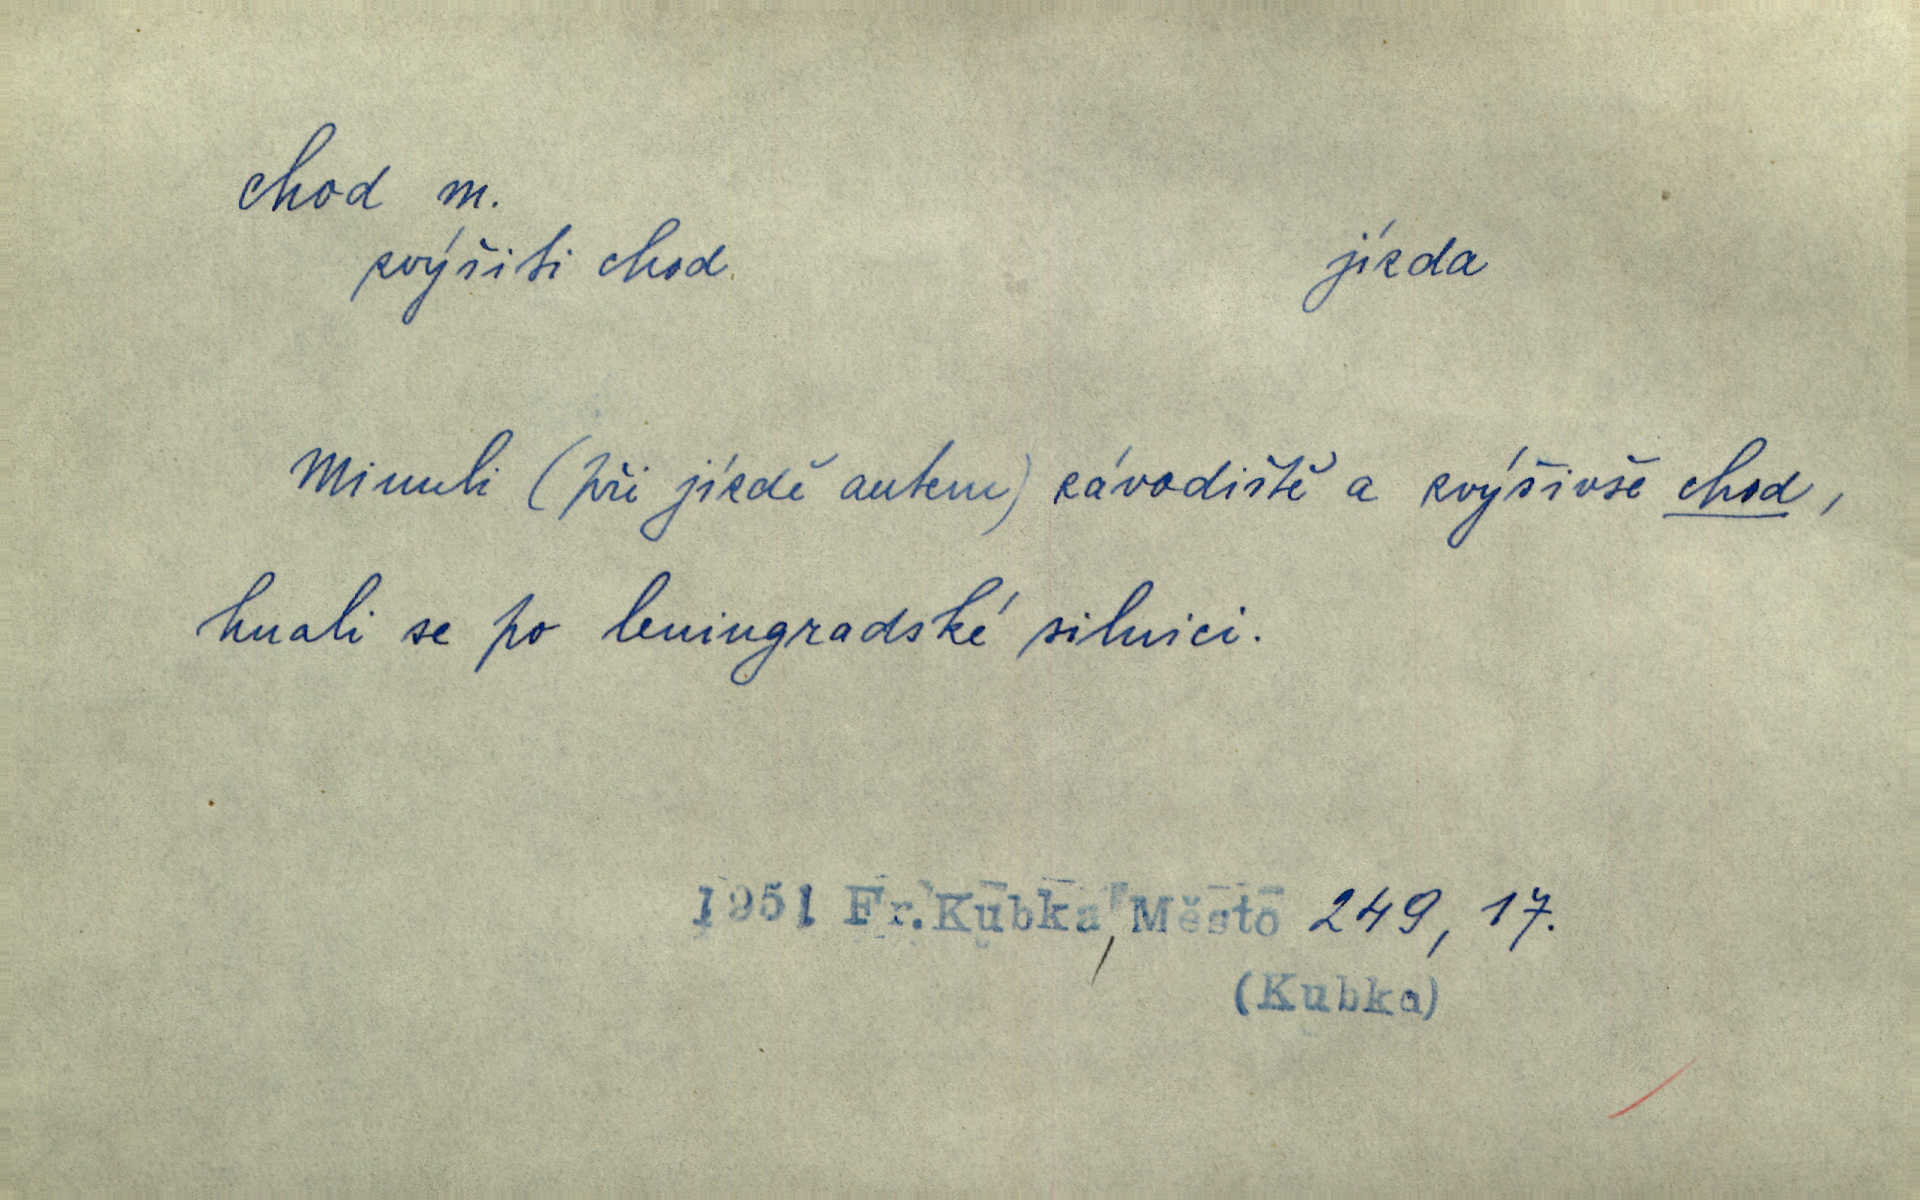 chod m.
zvýšiti chod
jízda
Minuli (při jízdě autem) závodiště a zvýšivše chod,
hnali se po leningradské silnici.
1951 Fr. Kubka, Město 249, 17.
(Kubka)